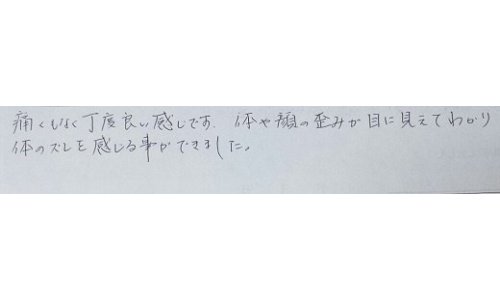 痛くもなく丁度良い感じです。体や顔の歪みが目に見えてわかり
体のズレを感じる事ができました。